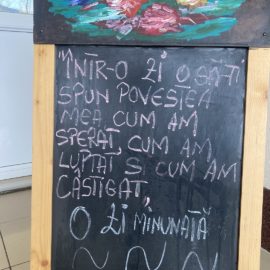 "ÎNTR-O ZI O SĂ-ȚI
SPUN POVESTEA
MEA CUM AM
SPERAT, CUM AM
LUPTAT SI CUM AM
CÂȘTIGAT,
O ZI MINUNATĂ